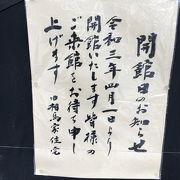 開館日のお知らせ
令和三年四月一日より
開館いたします皆様の
ご来館をお待ち申し
上げます
旧相馬家住宅